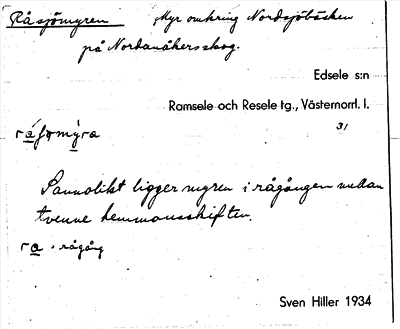 Råsjömyren Myr omkring Nordsjöbäcken
på Nordanåkersskog.
Edsele s:n
Ramsele och Resele tg., Västernorrl. l.
31
Sannolikt ligger myren i rågången mellan
tvenne hemmansskiften.
ra - rågång
Sven Hiller 1934